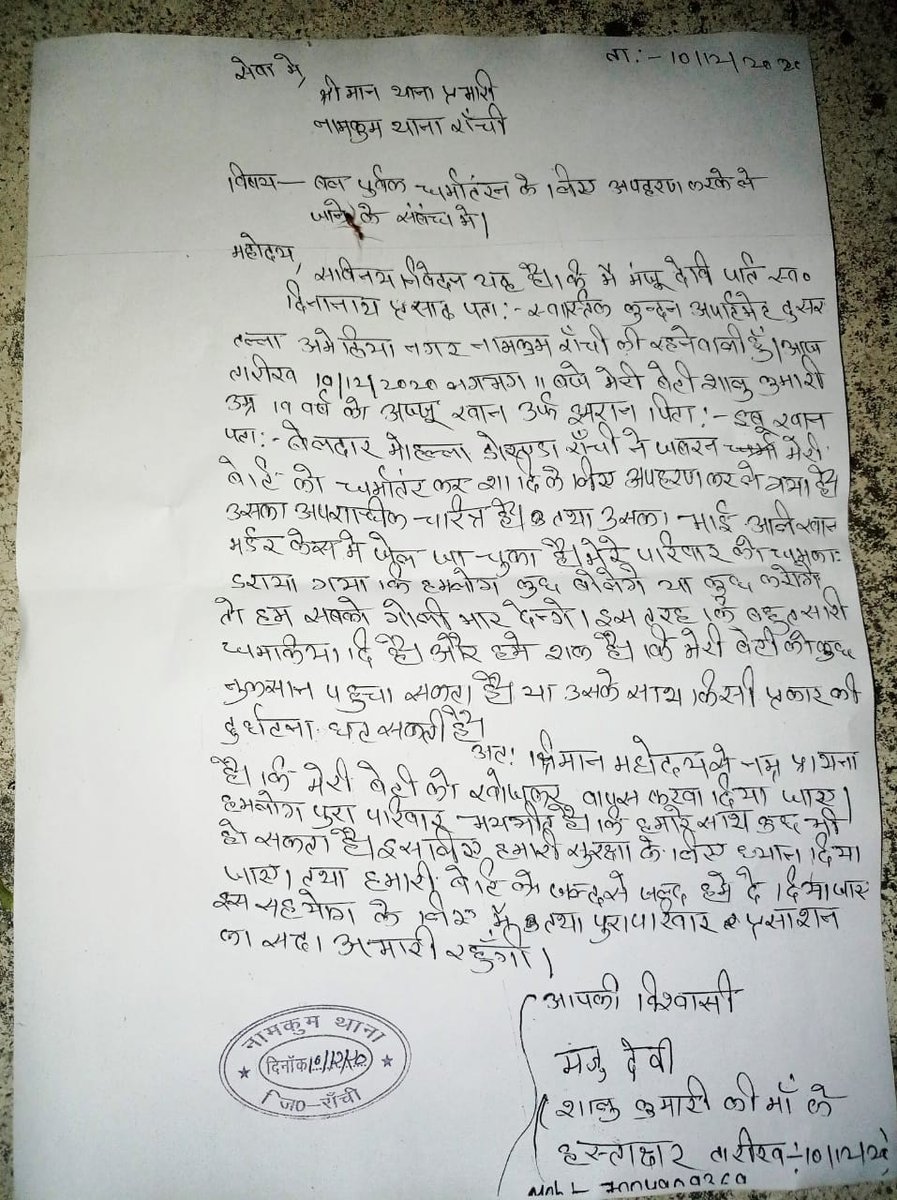 ता:- 10/12/2020
सेवा में,
श्रीमान थाना प्रभारी
नामकुम थाना राँची
विषय— बल पुर्वक धर्मातंरन के लिए अपहरण करके ले
जाने के संबंध मे।
महोदय,
सविनय निवेदन यह है। कि मै मंजू देवि पति स्व॰
दिनानाथ प्रसाद पता:- स्वास्तिक कुन्दन अपार्टमेंट दुसरा
तल्ला अमेठिया नगर नामकुम राँची की रहनेवाली हूँ। आज
तारीख 10/12/2020 लगभग 11 बजे मेरी बेटी शालु कुमारी
उम्र 19 वर्ष को अज्जू खान उर्फ पिता:- खान
पता:- मोहल्ला राँची ने जबरन मेरी
बेटि को धर्मातंर कर शादि के लिए अपहरण कर ले गया है।
उसका अपराधिक चरित्र है। तथा उसका भाई खान
मर्डर केस मे जेल जा चुका है। मेरे परिवार को धमका
डराया गया। कि हमलोग कुछ बोलेगे या कुछ करेगे
तो हम सबको गोली मार देन्गे। इस तरह कि बहुत सारी
धमकिया दि है। और हमे शक है। कि मेरी बेटी को कुछ
नुकसान पहुचा सकता है। या उसके साथ किसी प्रकार की
दुर्घटना घट सकती है।
अत: श्रिमान महोदय से नम्र प्राथना
है। कि मेरी बेटी को खोजकर वापस करवा दिया जाए।
हमलोग पुरा परिवार भयभीत है। कि हमारे साथ कुछ भी
हो सकता है। इसलिए हमारी सुरक्षा के लिए ध्यान दिया
जाए। तथा हमारी बेटि को जल्द से जल्द हमे दे दिया जाए
इस सहयोग के लिए मैं तथा पुरा परिवार प्रसाशन
का सदा अभारी रहुँगी।
आपकी विश्वासी
मंजु देवी
शालु कुमारी की माँ के
हस्ताक्षर तारीख:-10/12/20
नामकुम थाना
दिनाँक 10/12/20
जि0-राँची